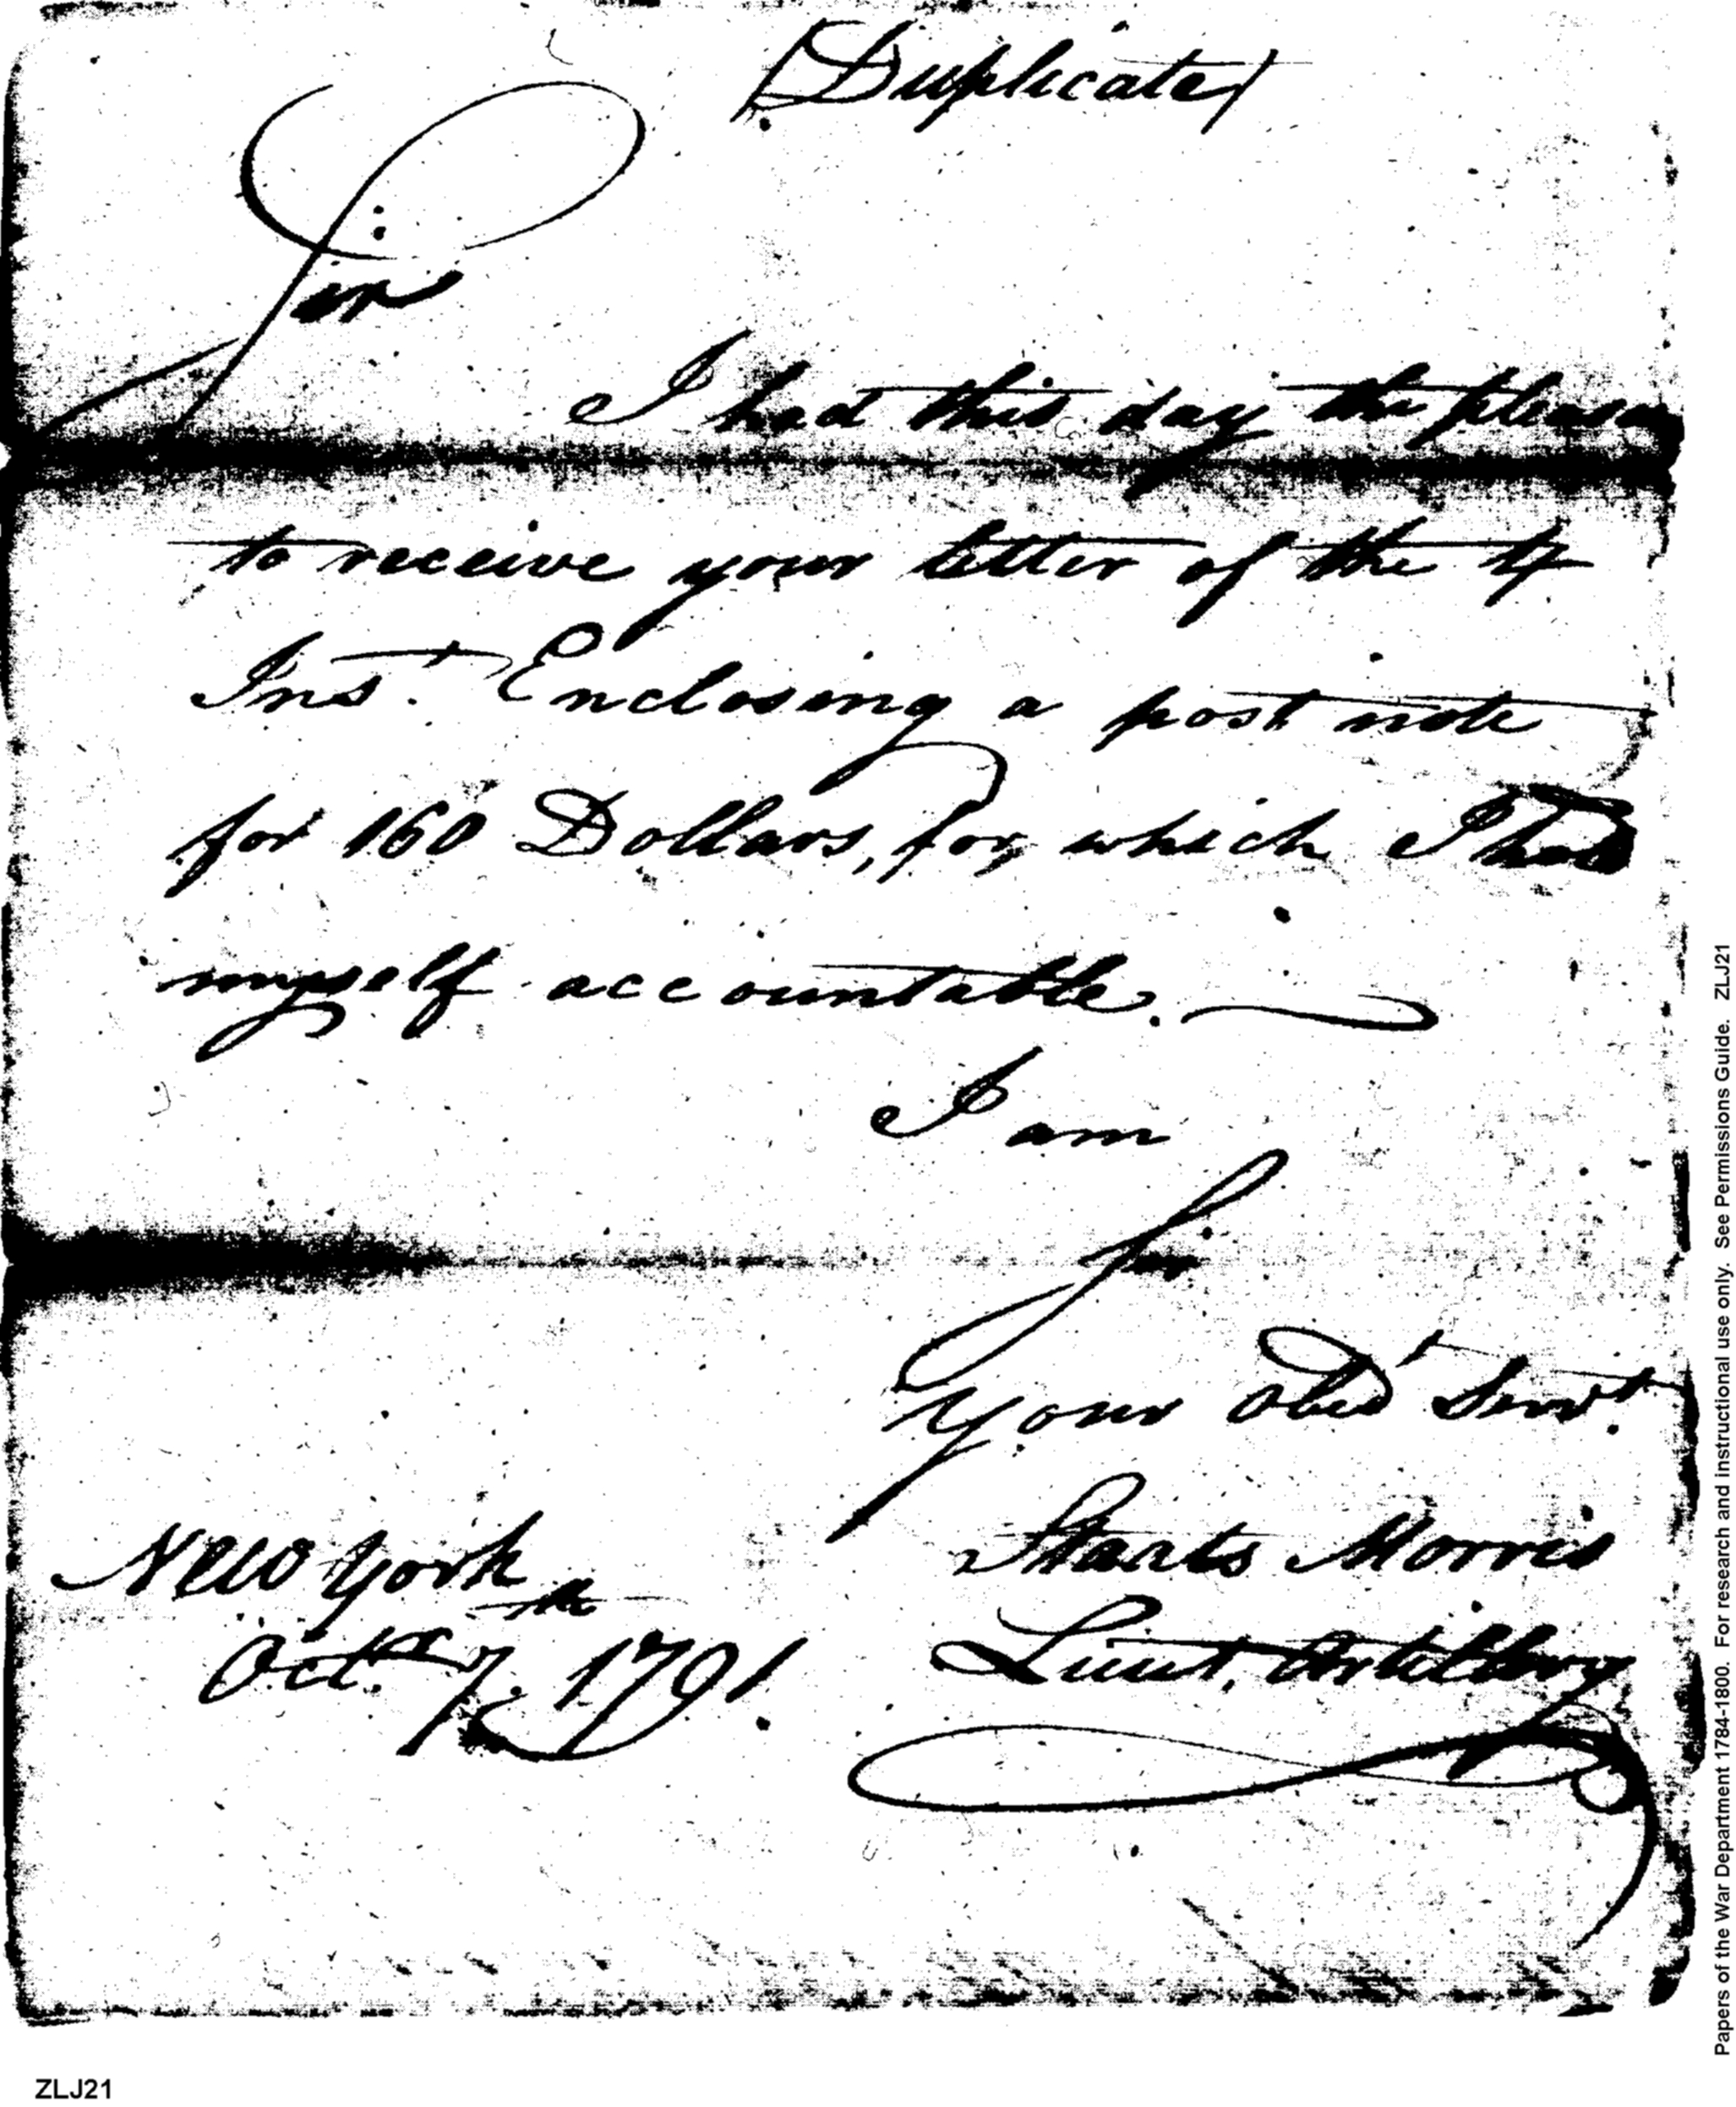 (Duplicate)
Sir
I had this day the pleasu
to receive your letter of the 4
Inst. Enclosing a post note
for 160 Dollars, for which I hold
myself accountable.
I am
Sir
your obedt Servt.
Staats Morris
New York
Lieut. Artillery
Octr. 7th. 1791.
Papers of the War Department 1784-1800. For research and instructional use only. See Permissions Guide. ZLJ21
ZLJ21